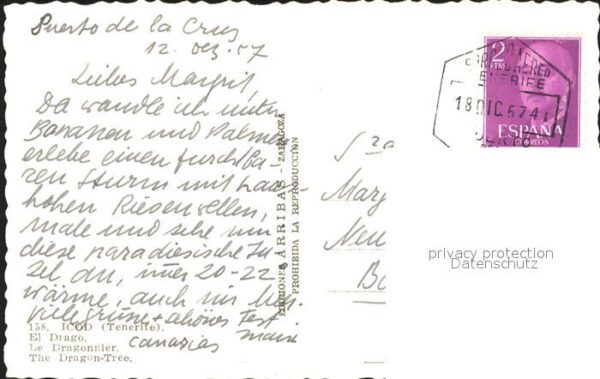 Puerto de la Cruz
12. Dez. 57
Liebes Margrit,
Da wandle ich unter
Bananen und Palmen
erlebe einen furchtba-
ren Sturm mit haus-
hohen Riesenwellen,
male und sehe mir
diese paradiesische In-
sel an, immer 20-22
wärme, auch im Meer
viele grüne + schönes Fest
canarias
158. ICOD (Tenerife).
El Drago.
Le Dragonnier.
The Dragon-Tree.
EDICIONES ARRIBAS - ZARAGOZA
PROHIBIDA LA REPRODUCCIÓN
2
PTAS
ESPAÑA
CORREOS
TENERIFE
18 DIC 57 4
Neu
privacy protection
Datenschutz